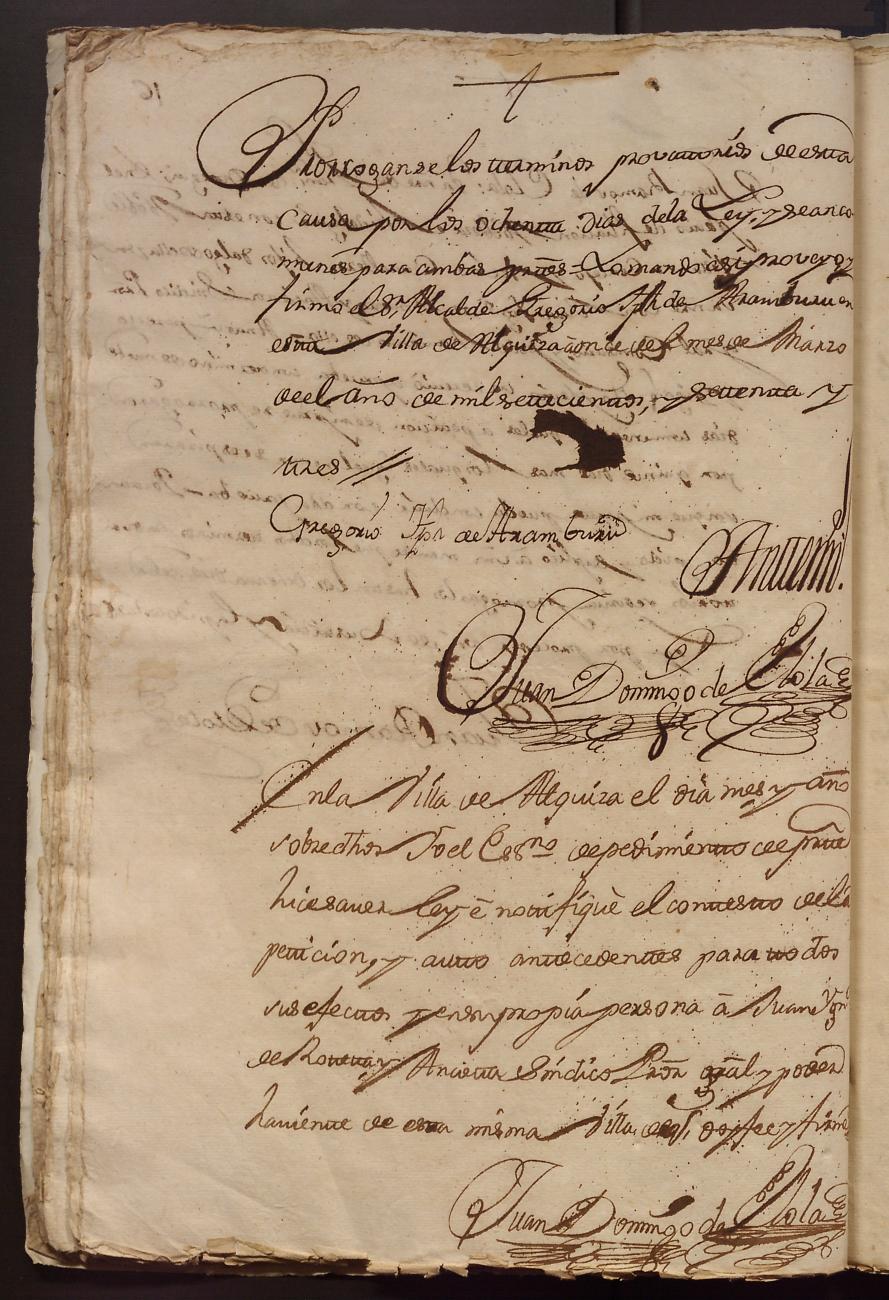 Prorroganse los terminos provatorios de esta
causa por los ochenta dias de la Ley, y sean co
munes para ambas partes = Lo mando, asi proveyo, y
firmo el Sr. Alcalde Gregorio Jph de Aramburu en
esta Villa de Alquiza a once de el mes de Marzo
de el año de mil setecientos, y setenta y
tres //
Gregorio Jph de Aramburu
Ante mi.
Juan Domingo de Elola
En la Villa de Alquiza el dia mes y año
sobre dhos Yo el Essno de pedimento de parte
hice saver ley è notifiquè el contesto de la
peticion, y auto antecedentes para todos
sus efectos y en su propia persona â Juan
de Roteta y Ancieta Sindico Pror gral y poder
haviente de esta misma Villa, doy fee y firmè
Juan Domingo de Elola